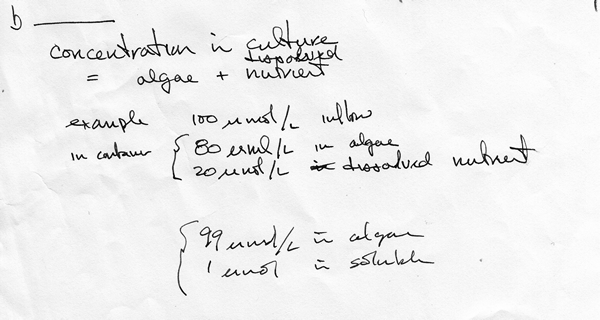 b
concentration in culture
dissolved
= algae + nutrient
example 100 umol/L inflow
in container { 80 umol/L in algae
20 umol/L in dissolved nutrient
{ 99 umol/L in algae
1 umol in soluble